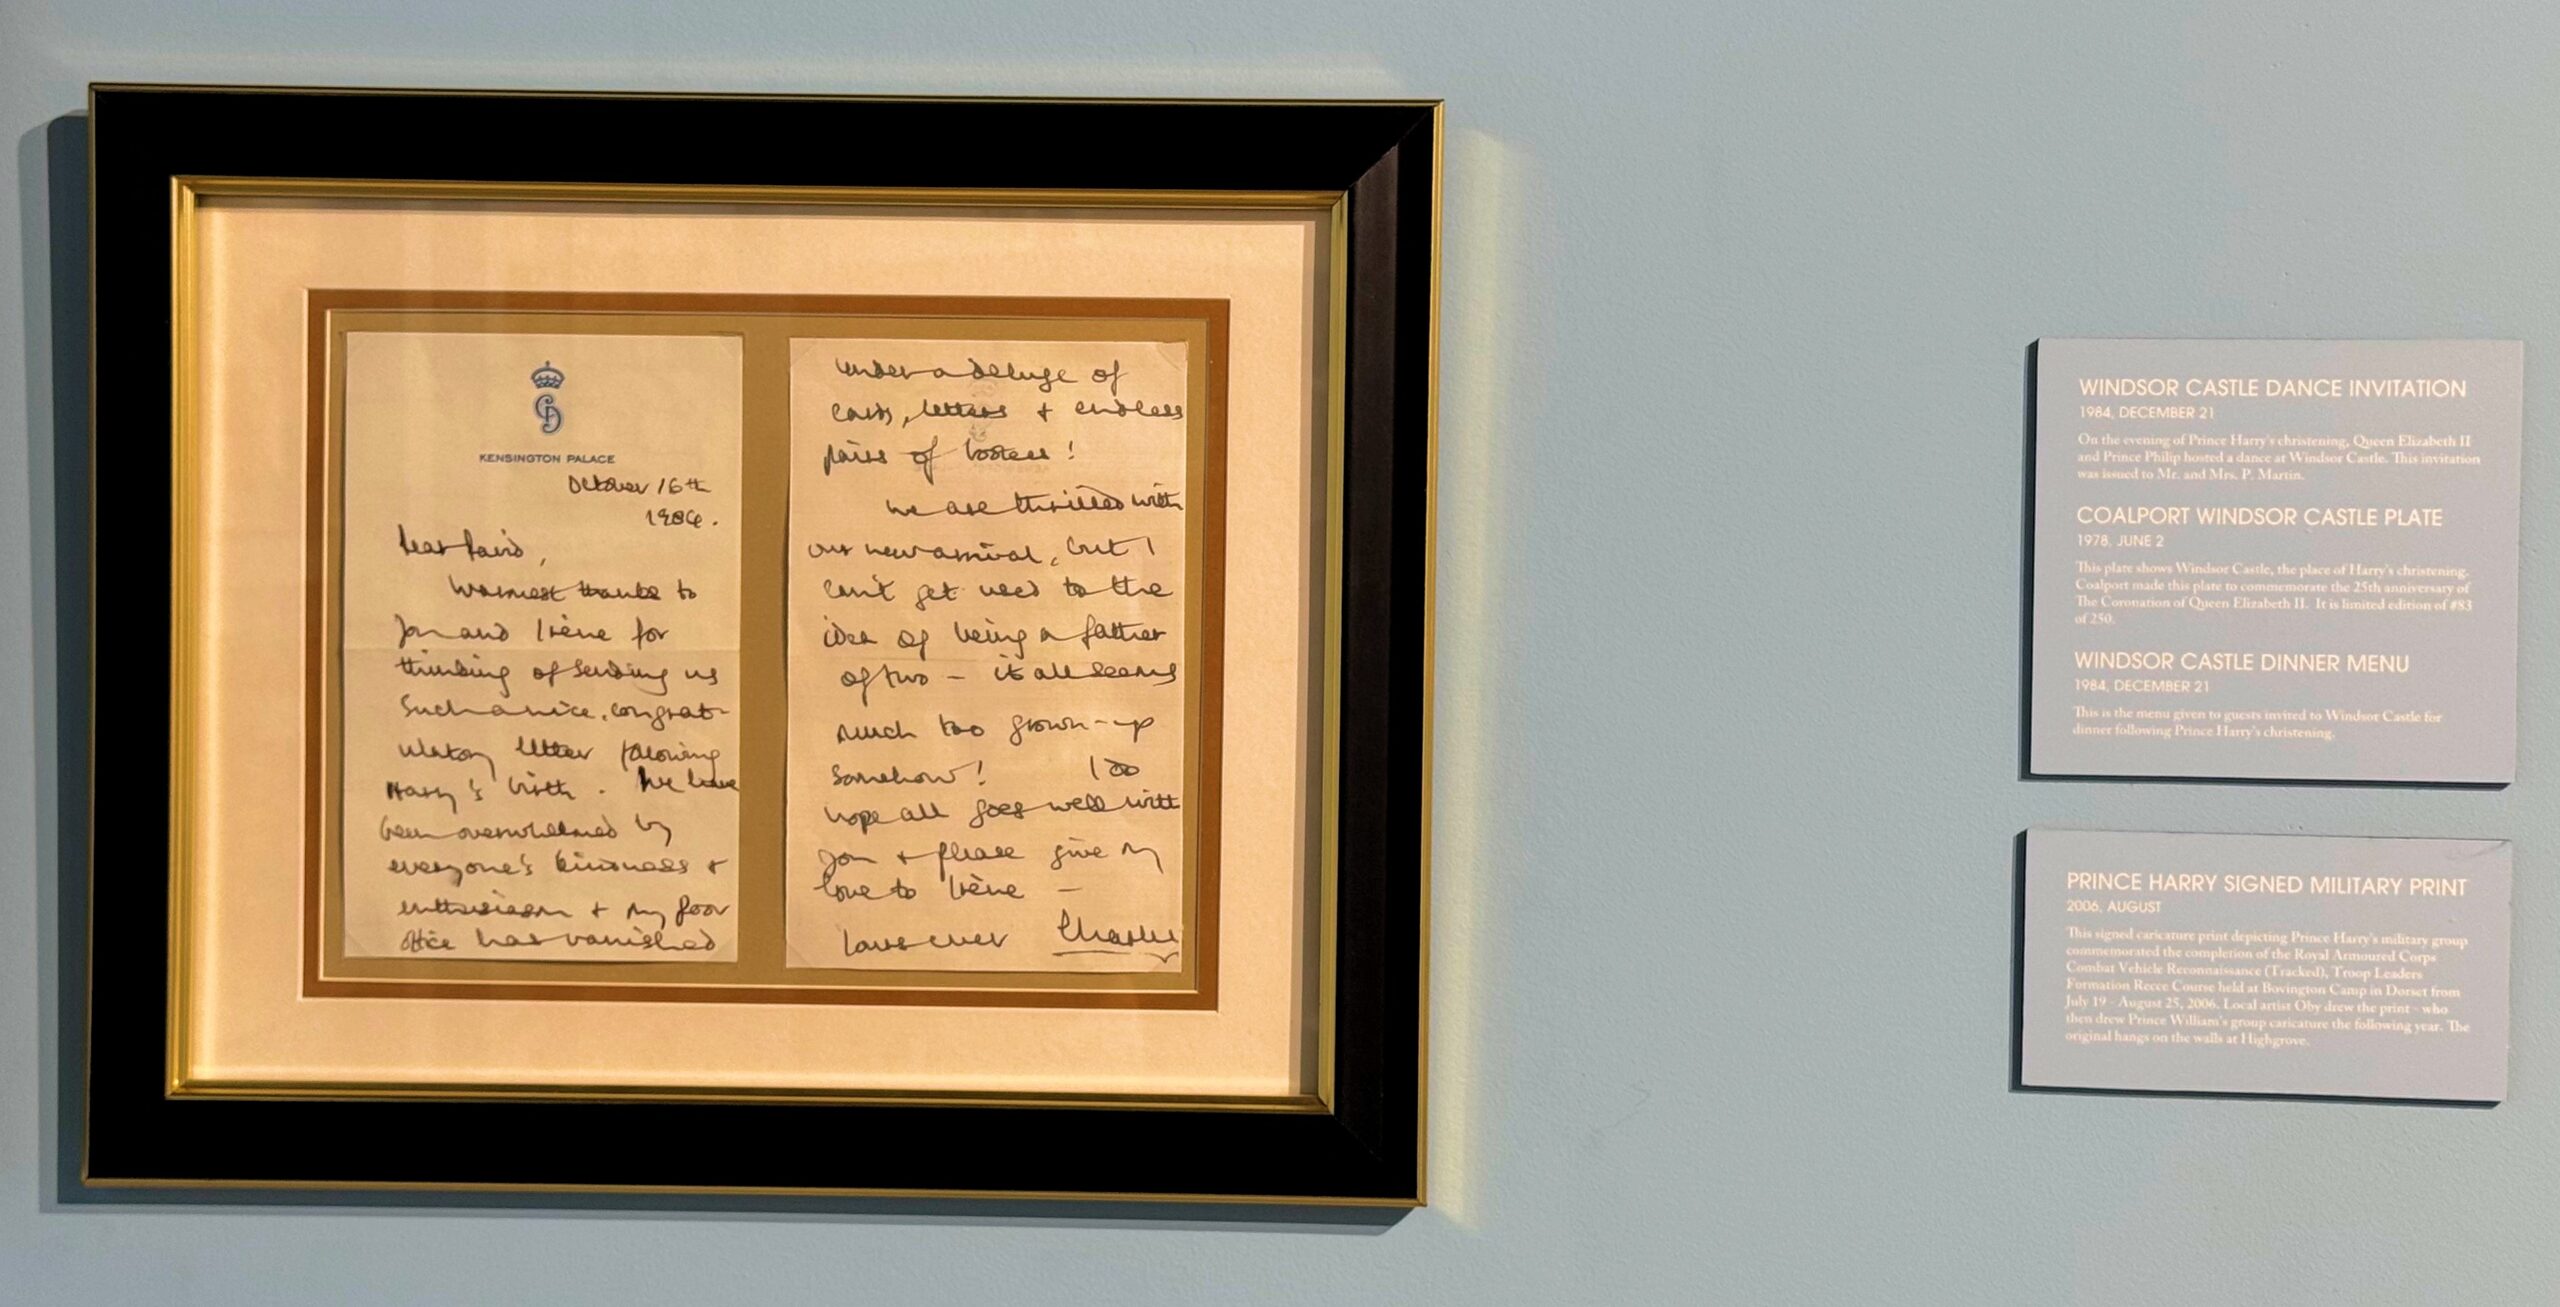 KENSINGTON PALACE
October 16th
1984.
Dear David,
Warmest thanks to
you and Irène for
thinking of sending us
such a nice, congrat-
ulatory letter following
Harry's birth. We have
been overwhelmed by
everyone's kindness +
enthusiasm + my poor
office has vanished
under a deluge of
cards, letters + endless
pairs of bootees!
We are thrilled with
our new arrival, but I
can't get used to the
idea of being a father
of two - it all seems
much too grown-up
somehow! I do
hope all goes well with
you + please give my
love to Irène -
Yours ever Charles
WINDSOR CASTLE DANCE INVITATION
1984, DECEMBER 21
On the evening of Prince Harry's christening, Queen Elizabeth II
and Prince Philip hosted a dance at Windsor Castle. This invitation
was issued to Mr. and Mrs. P. Martin.
COALPORT WINDSOR CASTLE PLATE
1978, JUNE 2
This plate shows Windsor Castle, the place of Harry's christening.
Coalport made this plate to commemorate the 25th anniversary of
The Coronation of Queen Elizabeth II. It is limited edition of #83
of 250.
WINDSOR CASTLE DINNER MENU
1984, DECEMBER 21
This is the menu given to guests invited to Windsor Castle for
dinner following Prince Harry's christening.
PRINCE HARRY SIGNED MILITARY PRINT
2006, AUGUST
This signed caricature print depicting Prince Harry's military group
commemorated the completion of the Royal Armoured Corps
Combat Vehicle Reconnaissance (Tracked), Troop Leaders
Formation Recce Course held at Bovington Camp in Dorset from
July 19 - August 25, 2006. Local artist Oby drew the print - who
then drew Prince William's group caricature the following year. The
original hangs on the walls at Highgrove.